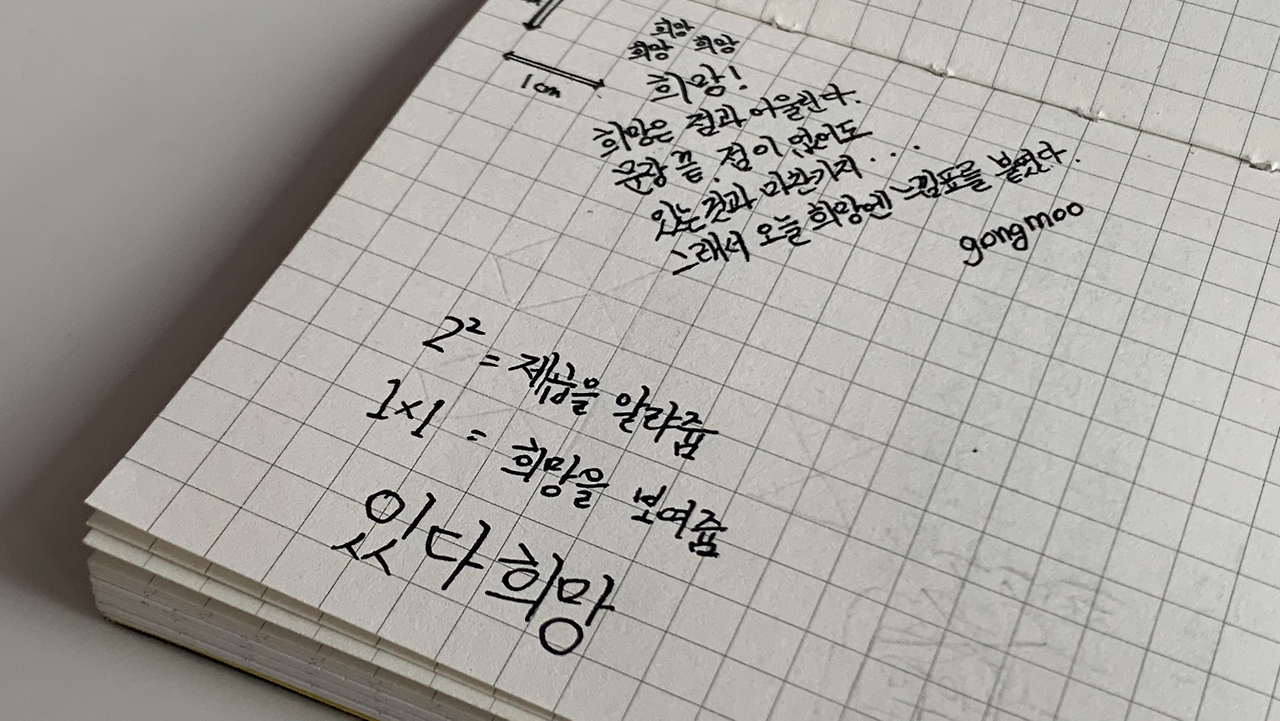 1cm
희망
희망 희망
희망!
희망은 점과 어울린다.
문장 끝. 점이 없어도
있는것과 마찬가지...
그래서 오늘 희망엔 느낌표를 붙였다.
gongmoo
2² = 제곱을 알라줌
1×1 = 희망을 보여줌
있다희망